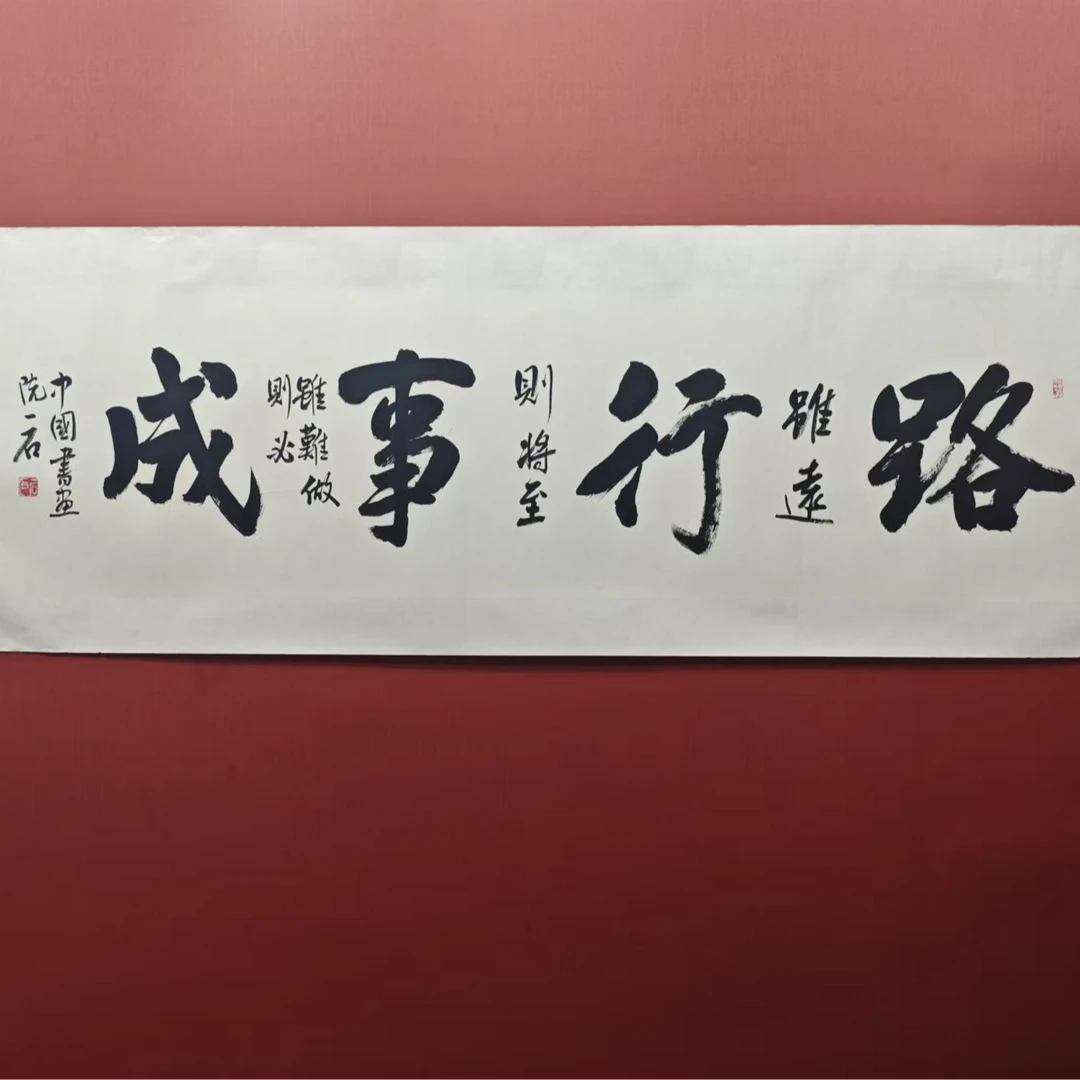 路
雖遠
行
則將至
事
雖難做
則必
成
中國書畫
院一石